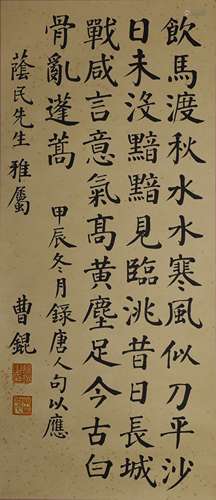 飲馬渡秋水水寒風似刀平沙
日未沒黯黯見臨洮昔日長城
戰咸言意氣高黃塵足今古白
骨亂蓬蒿 甲辰冬月錄唐人句以應
蔭民先生雅屬 曹錕